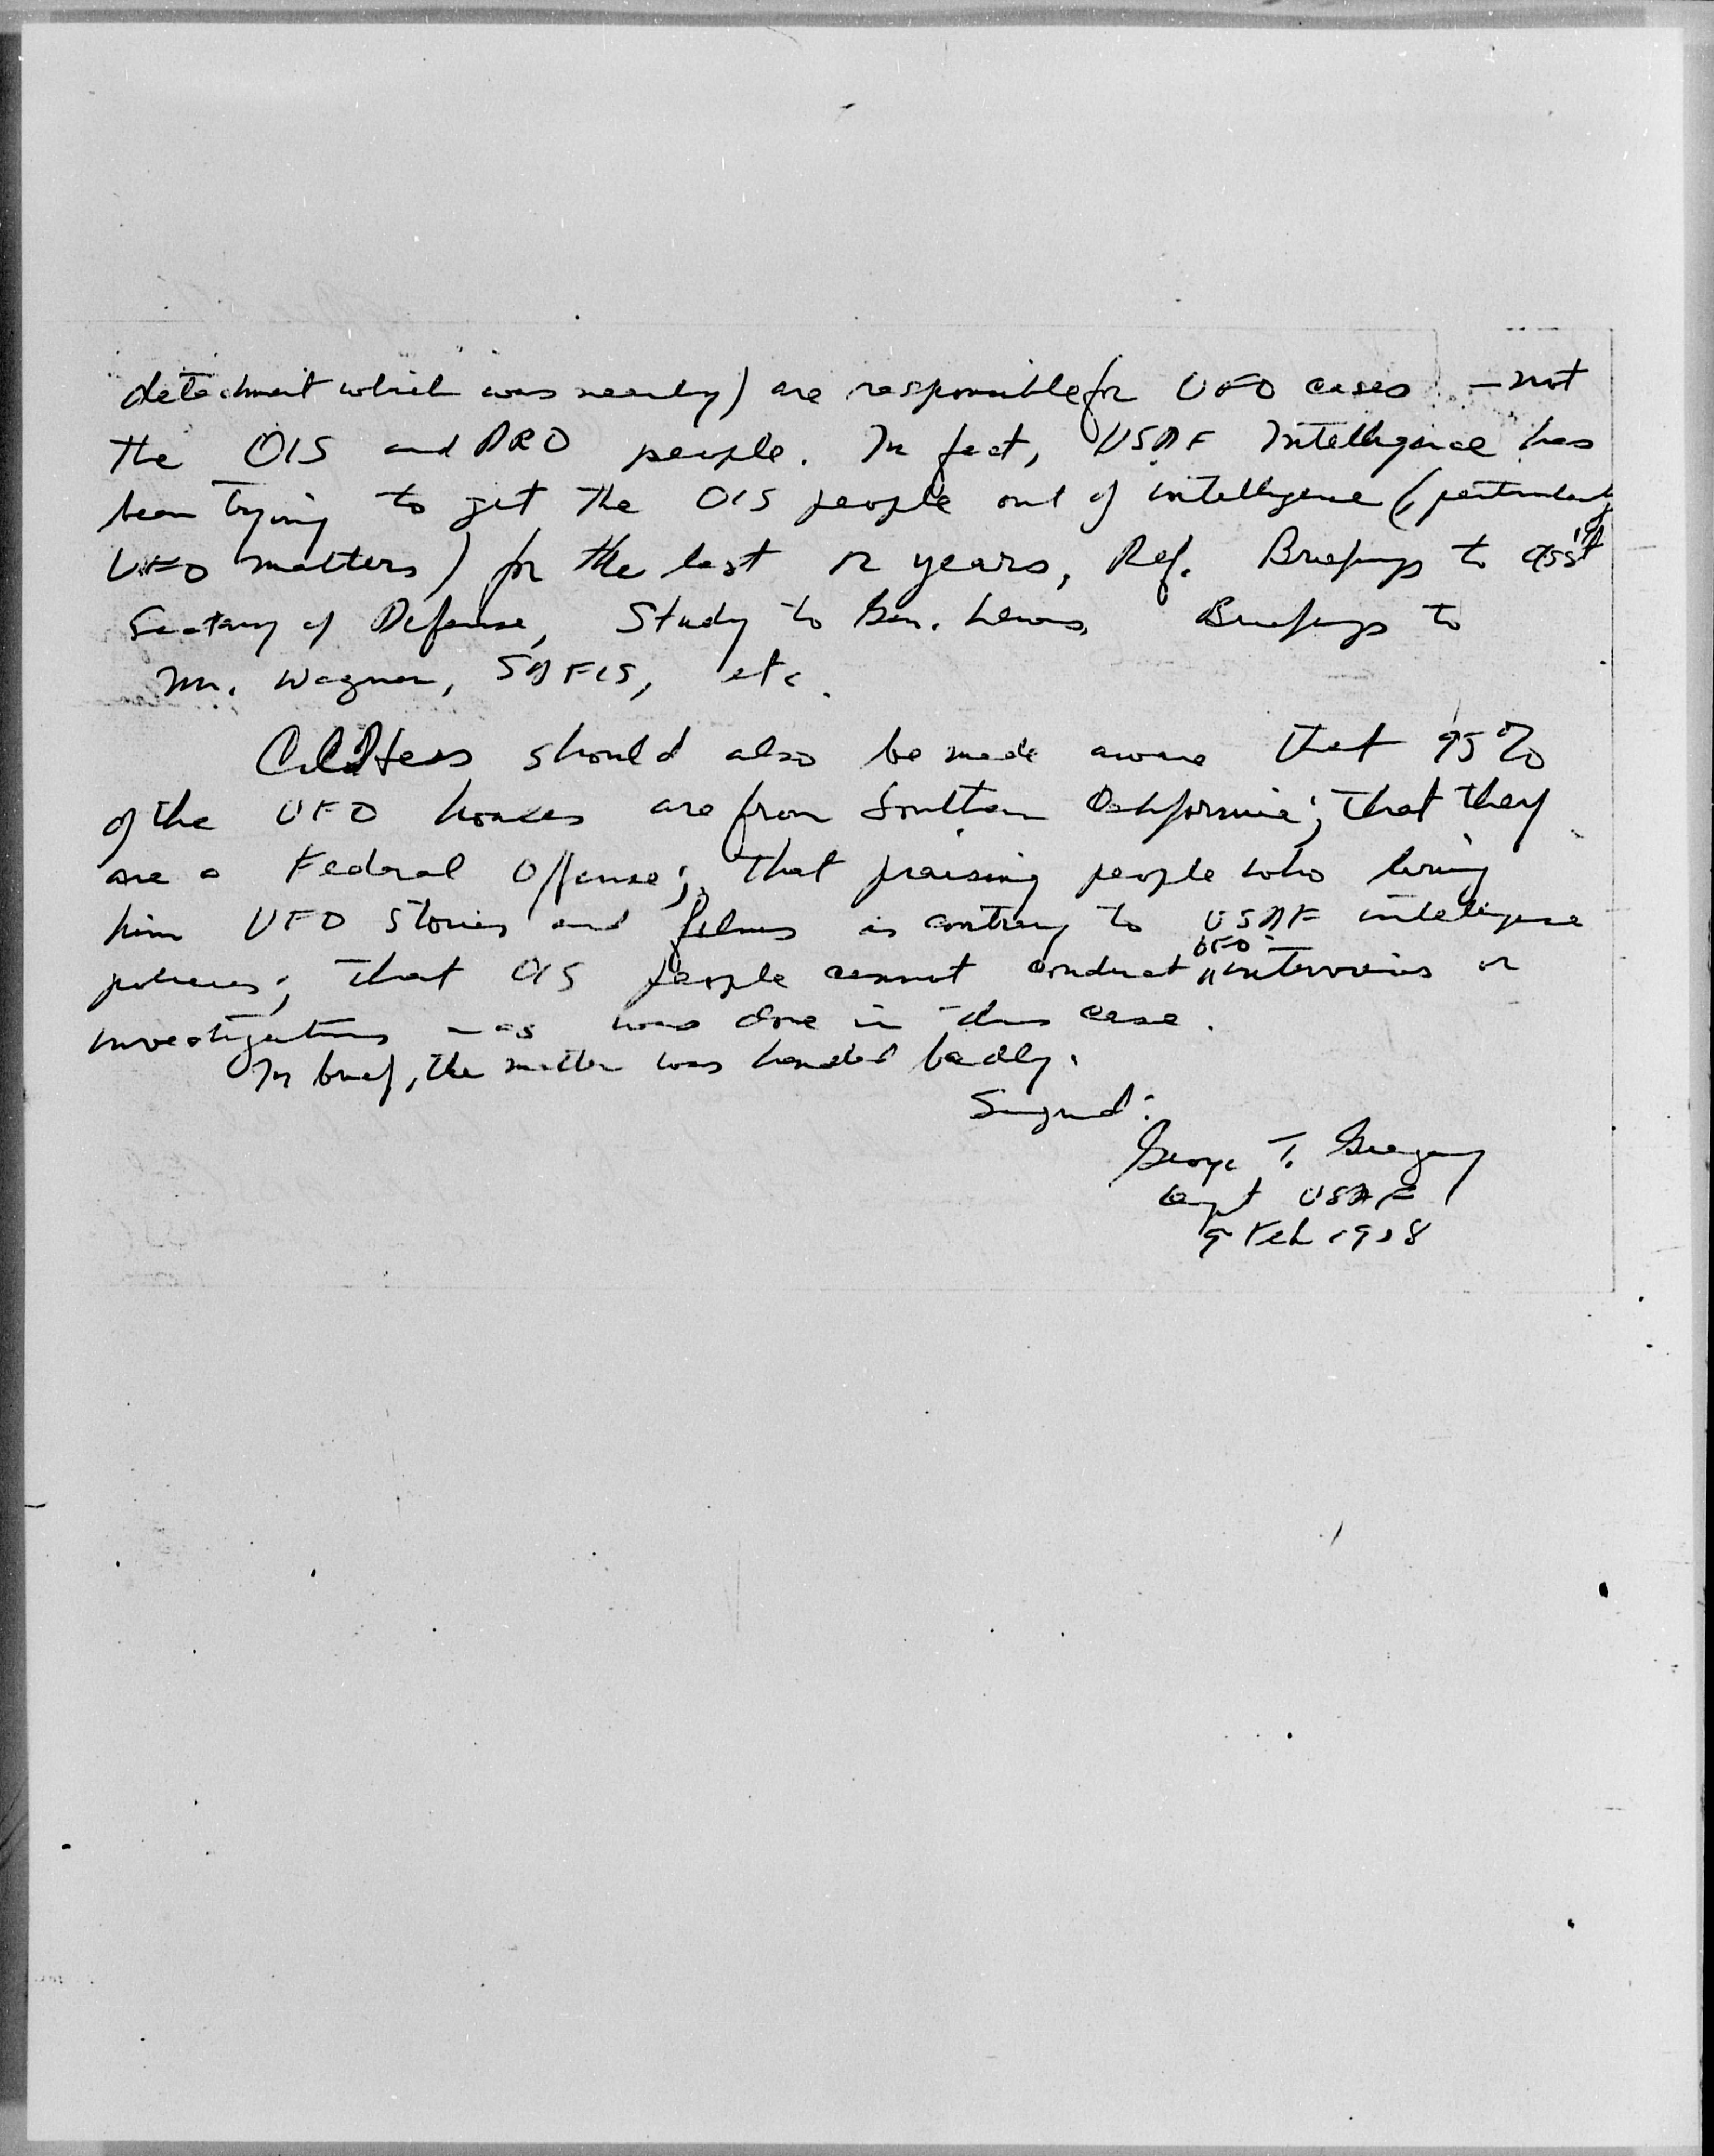 detachment which was nearby) are responsible for UFO cases - not
the OIS and PRO people. In fact, USAF Intelligence has
been trying to get the OIS people out of intelligence (particularly
UFO matters) for the last 12 years, Ref. Briefings to Ass't
Secretary of Defense, Study to Gen. Lewis, Briefings to
Mr. Wagner, SAFIS, etc.
should also be made aware that 95%
of the UFO hoaxes are from Southern California; that they
are a Federal Offense; that praising people who bring
him UFO stories and films is contrary to USAF intelligence
policies; that OIS people cannot conduct UFO interviews or
investigations - as was done in this case.
In brief, the matter was handled badly.
Signed:
George T. Gregory
Capt USAF
9 Feb 1958